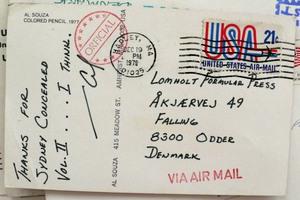 AL SOUZA
COLORED PENCIL, 1977
OFFICIAL
HADLEY, MA
DEC 19
PM
1978
01035
USA 21c
UNITED STATES AIR MAIL
THANKS FOR
SYDNEY CONCEALED
VOL. II ... I THINK.
al
AL SOUZA 415 MEADOW ST. AMHERST
LOMHOLT FORMULAR PRESS
ÅKJÆRVEJ 49
FALLING
8300 ODDER
DENMARK
VIA AIR MAIL